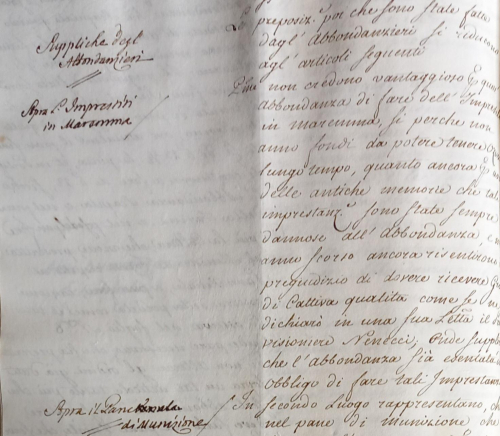 Suppliche degl'
Abbondanzieri
Sopra l'Impressiti
in Maremma
Sopra il Pane
di Munizione
preposiz.ⁿⁱ poi che sono state fatte
dagl' Abbondanzieri si riducono
agl' articoli seguenti
non credono vantaggioso
Abbondanza di fare dell'
in maremma, si perche non
anno fondi da potere tenere
lungo tempo, quanto ancora
delle antiche memorie che tali
imprestanz.ᵉ sono state sempre
dannose all' Abbondanza, e
anno scorso ancora risentirono
pregiudizio di dovere ricevere
di Cattiva qualità come se
dichiarò in una sua Lett.ᵃ il
visioniere Nenucci; Onde
che l'abbondanza sia esentata
obbligo di fare tali
In secondo Luogo rappresentano, che
nel pane di munizione